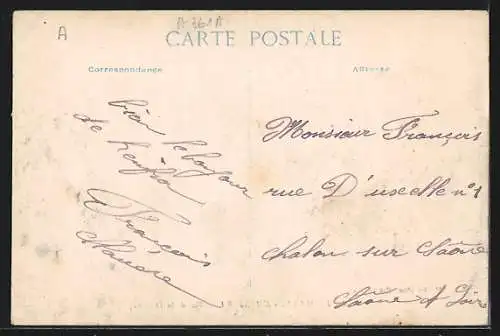 A
A 361A
CARTE POSTALE
Correspondance
Adresse
bien le bonjour
de
François
Claudre
Monsieur François
rue D'uxelle n°1
chalon sur Saône
Saône & Loire